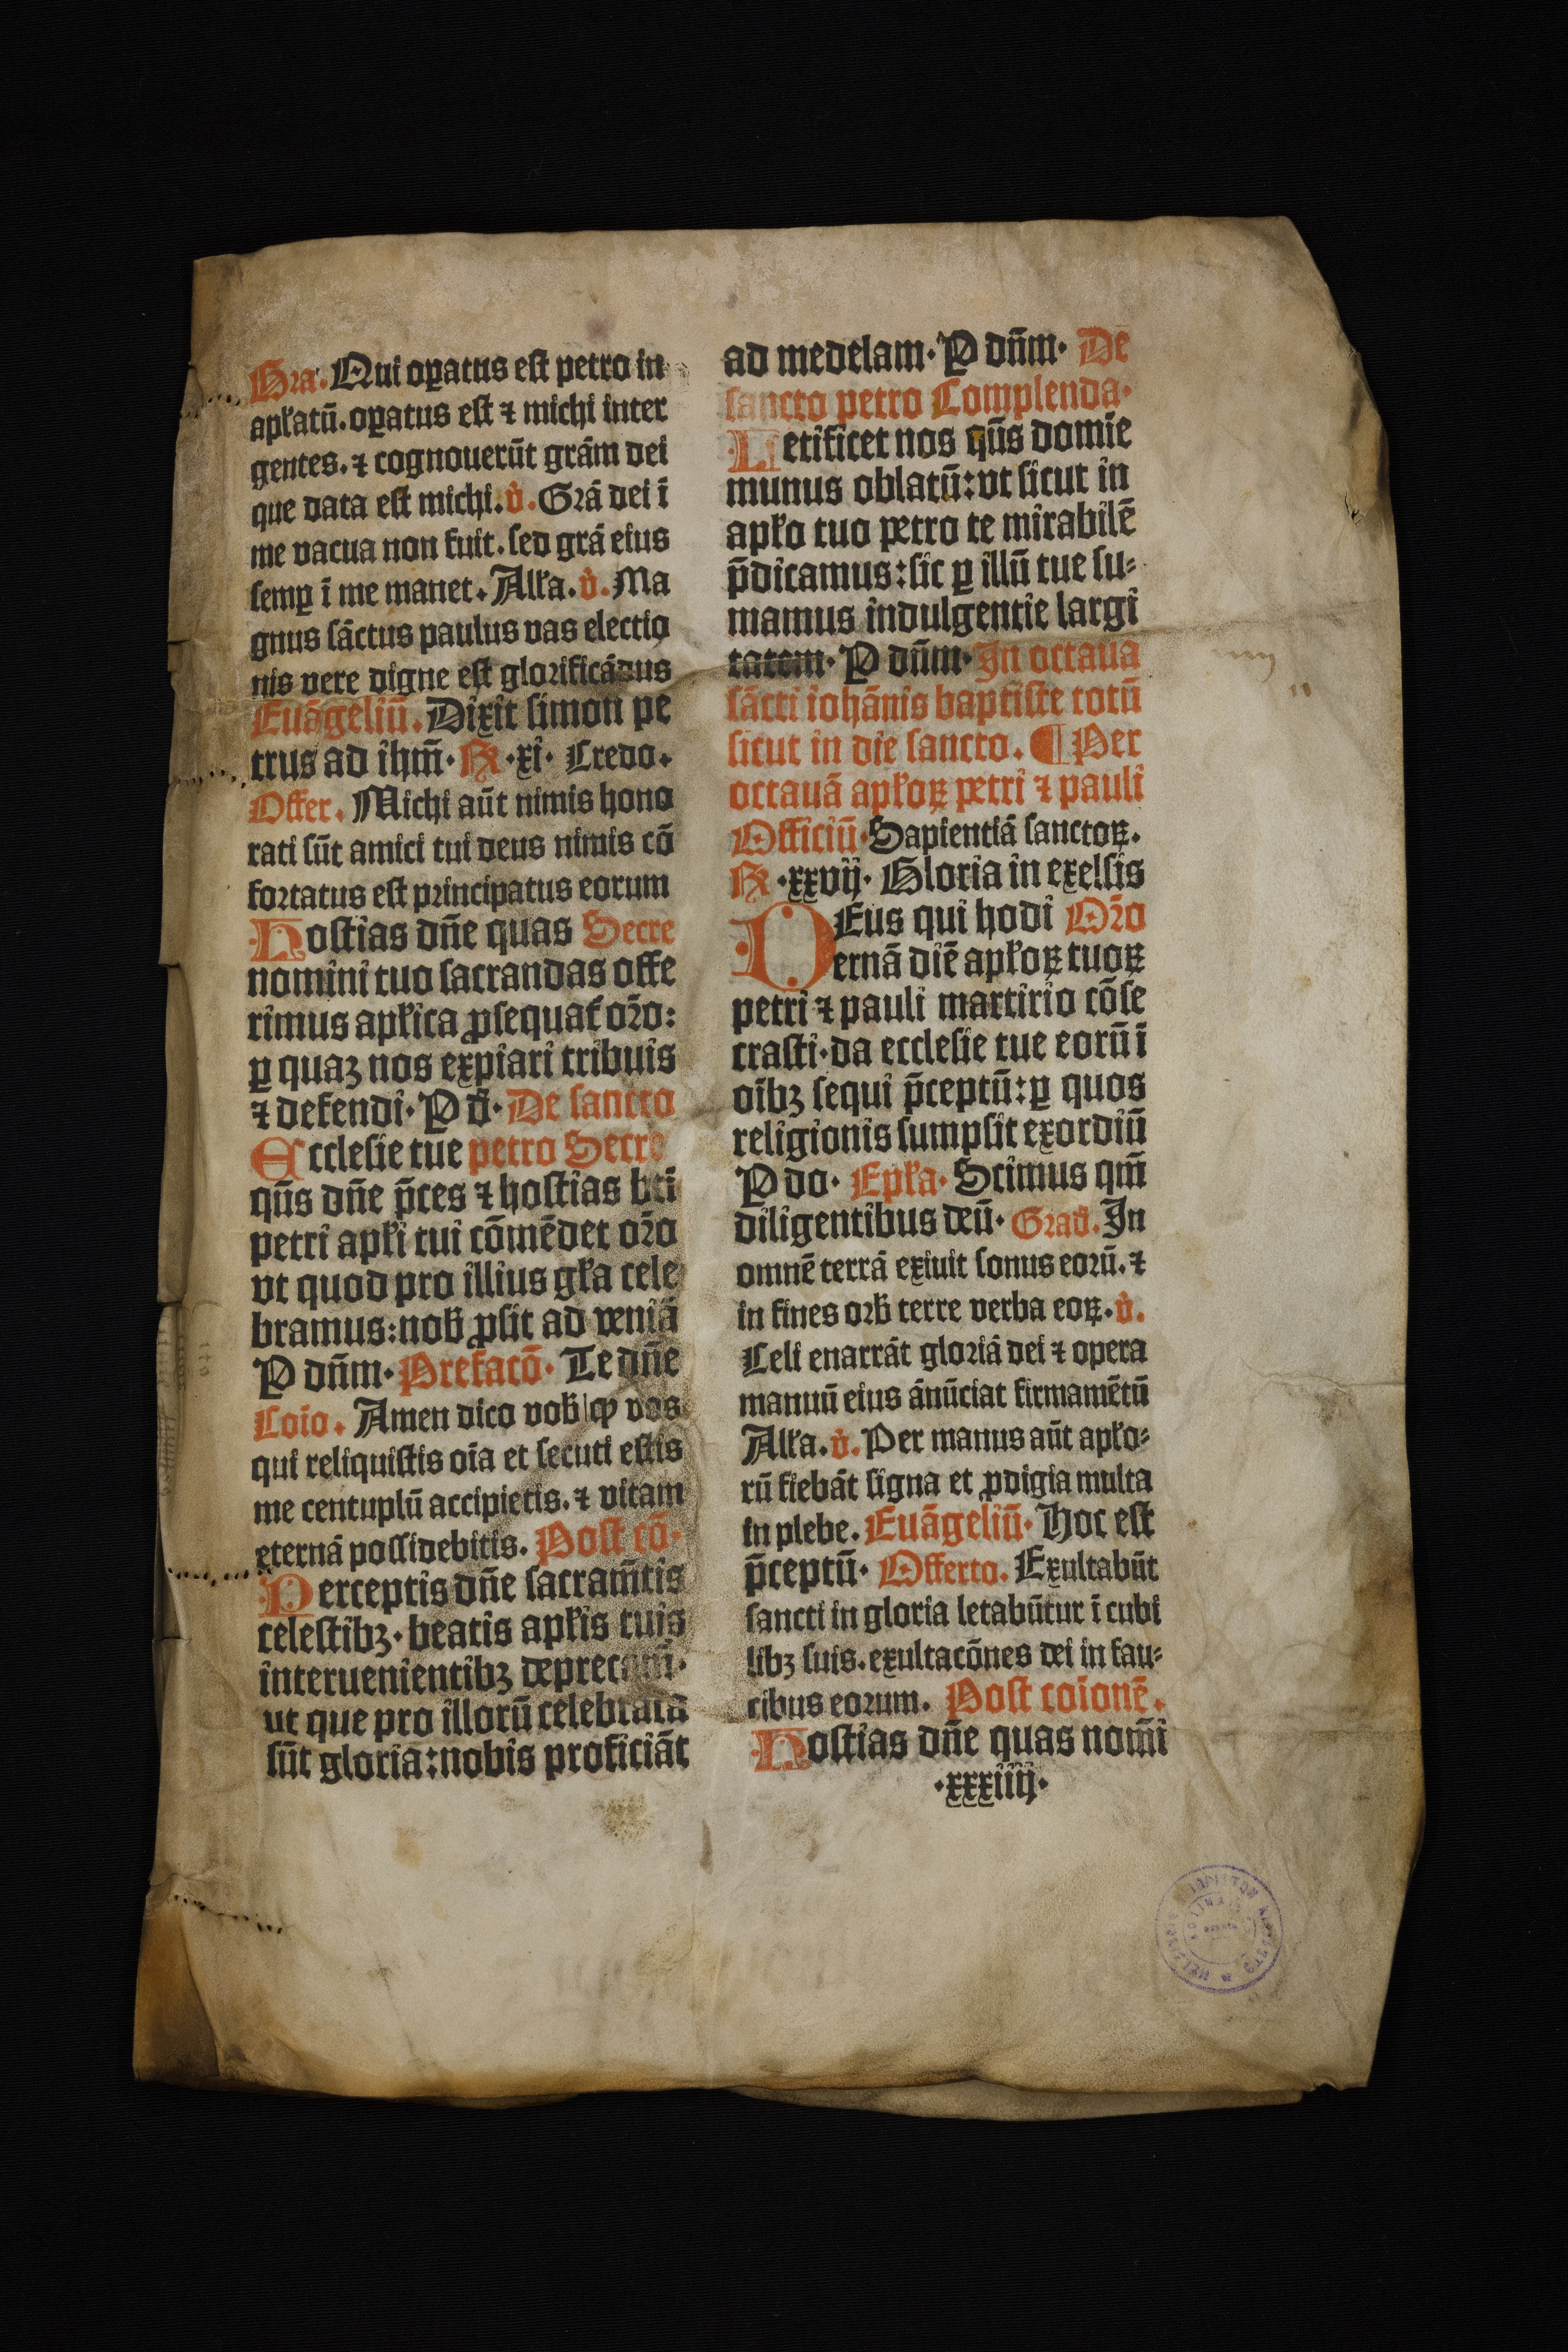 Gra. Qui oꝑatus est petro in
apłatū. oꝑatus est ⁊ michi inter
gentes. ⁊ cognouerūt grām dei
que data est michi. v̊. Grā dei ī
me vacua non fuit. sed grā eius
semꝑ ī me manet. Alła. v̊. Ma
gnus sāctus paulus vas electio
nis vere digne est glorificādus
Euāgeliū. Dixit simon pe
trus ad ihm̄. R .xi. Credo.
Offer. Michi aūt nimis hono
rati sūt amici tui deus nimis cō
fortatus est principatus eorum
Hostias dn̄e quas Secre
nomini tuo sacrandas offe
rimus apłica ꝓsequat̄ or̄o:
ꝑ quaꝫ nos expiari tribuis
⁊ defendi. P d̄. De sancto
Ecclesie tue petro Secre
qūs dn̄e p̄ces ⁊ hostias bti
petri apłi tui cōmēdet or̄o
vt quod pro illius gła cele
bramus: nob̄ ꝓsit ad veniā
P dn̄m. Prefacō. Te dn̄e
Coīo. Amen dico vob̄ ꝙ vos
qui reliquistis oīa et secuti estis
me centuplū accipietis. ⁊ vitam
eternā possidebitis. Post cō.
Perceptis dn̄e sacram̄tis
celestibꝫ. beatis apłis tuis
interuenientibꝫ deprecam̄.
ut que pro illorū celebrata
sūt gloria: nobis proficiāt
ad medelam. P dn̄m. De
sancto petro Complenda.
Letificet nos qūs domie
munus oblatū: vt sicut in
apło tuo petro te mirabilē
p̄dicamus: sic ꝑ illū tue su⸗
mamus indulgentie largi
tatem. P dn̄m. In octaua
sācti iohānis baptiste totū
sicut in die sancto. ¶ Per
octauā apłoꝝ petri ⁊ pauli
Officiū. Sapientiā sanctoꝝ.
R .xxvij. Gloria in exelsis
DEus qui hodi Or̄o
ernā diē apłoꝝ tuoꝝ
petri ⁊ pauli martirio cōse
crasti. da ecclesie tue eorū ī
oībꝫ sequi p̄ceptū: ꝑ quos
religionis sumpsit exordiū
P do. Epła. Scimus qm̄
diligentibus deū. Grad̄. In
omnē terrā exiuit sonus eorū. ⁊
in fines orb̄ terre verba eoꝝ. v̊.
Celi enarrāt gloriā dei ⁊ opera
manuū eius ānūciat firmamētū
Alła. v̊. Per manus aūt apło⸗
rū fiebāt signa et ꝓdigia multa
in plebe. Euāgeliū. Hoc est
p̄ceptū. Offerto. Exultabūt
sancti in gloria letabūtur ī cubi
libꝫ suis. exultacōnes dei in fau⸗
cibus eorum. Post coīonē.
Hostias dn̄e quas nom̄i
.xxxiiij.